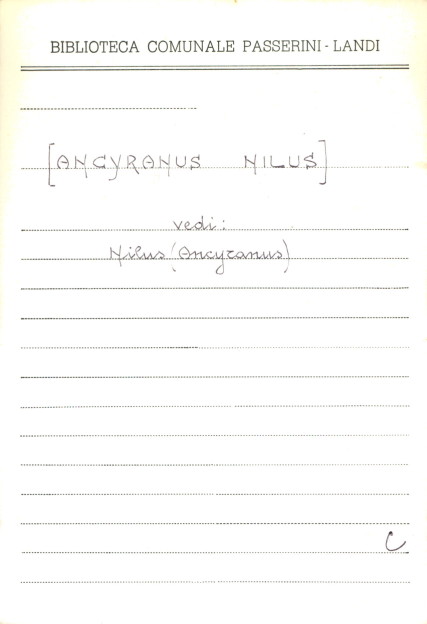 BIBLIOTECA COMUNALE PASSERINI-LANDI
[ANCYRANUS NILUS]
vedi:
Nilus (Ancyranus)
C